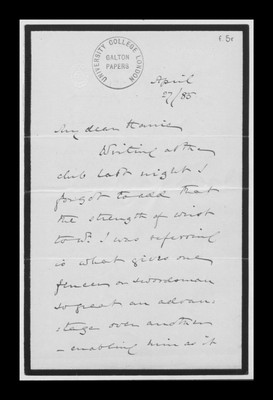 UNIVERSITY COLLEGE LONDON
GALTON
PAPERS
April
27/85
My dear
Writing at the
club last night I
forgot to add that
the strength of wrist
to wh. I was referring
is what gives one
fencer or swordsman
so great an advan-
-tage over another
- enabling him as it